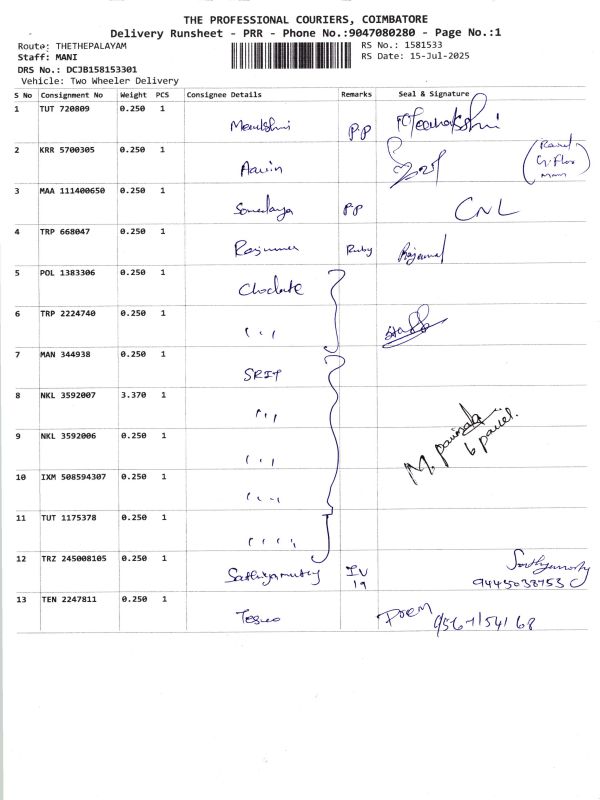 THE PROFESSIONAL COURIERS, COIMBATORE
Delivery Runsheet - PRR - Phone No.:9047080280 - Page No.:1
Route: THETHEPALAYAM RS No.: 1581533
Staff: MANI RS Date: 15-Jul-2025
DRS No.: DCJB158153301
Vehicle: Two Wheeler Delivery
S No Consignment No Weight PCS Consignee Details Remarks Seal & Signature
1 TUT 720809 0.250 1
Meenakshi P.P
2 KRR 5700305 0.250 1
3 MAA 111400650 0.250 1
P.P CNL
4 TRP 668047 0.250 1
Ruby
5 POL 1383306 0.250 1
Choclate
6 TRP 2224740 0.250 1
Staff
7 MAN 344938 0.250 1
SRIT
8 NKL 3592007 3.370 1
9 NKL 3592006 0.250 1
6 parcel.
10 IXM 508594307 0.250 1
11 TUT 1175378 0.250 1
12 TRZ 245008105 0.250 1
Sathiyamurthy IV
19
13 TEN 2247811 0.250 1
Prem